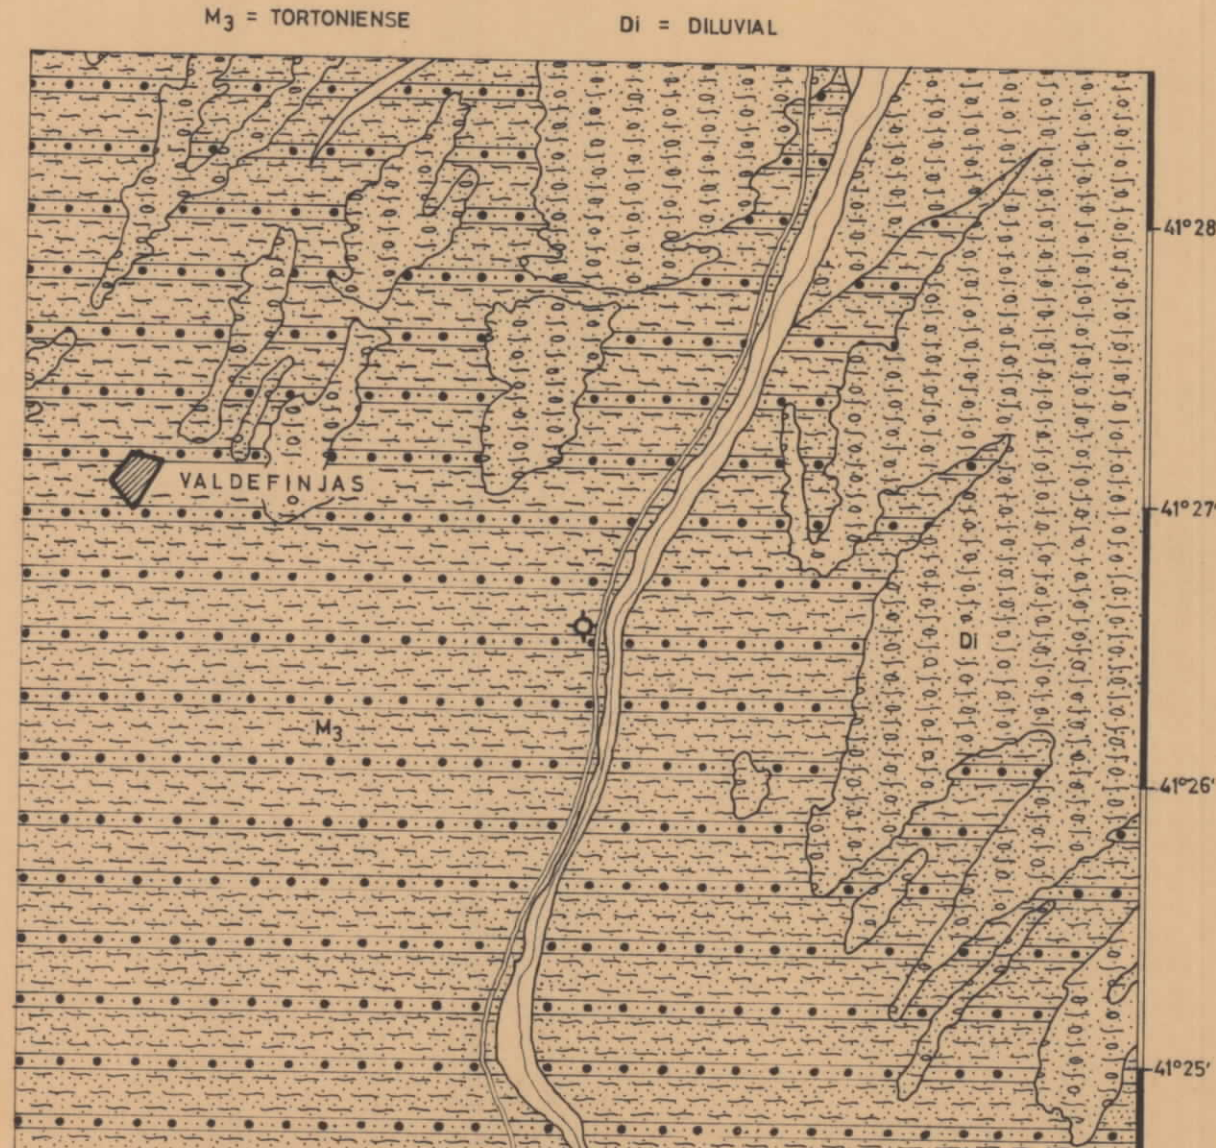 M3 = TORTONIENSE
Di = DILUVIAL
41°28
VALDEFINJAS
41°27'
Di
M3
41°26'
41°25'